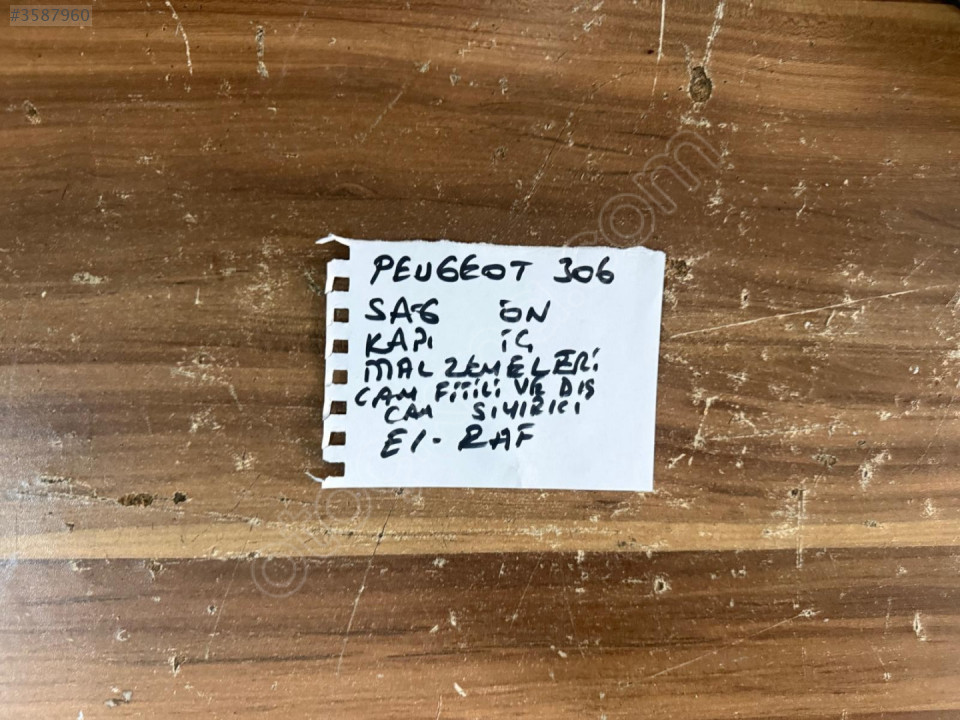 #3587960
PEUGEOT 306
SAG ÖN
KAPI İÇ
MALZEMELERİ
CAM FİTİLİ VE DIŞ
CAM SIYIRICI
E1-RAF
.com